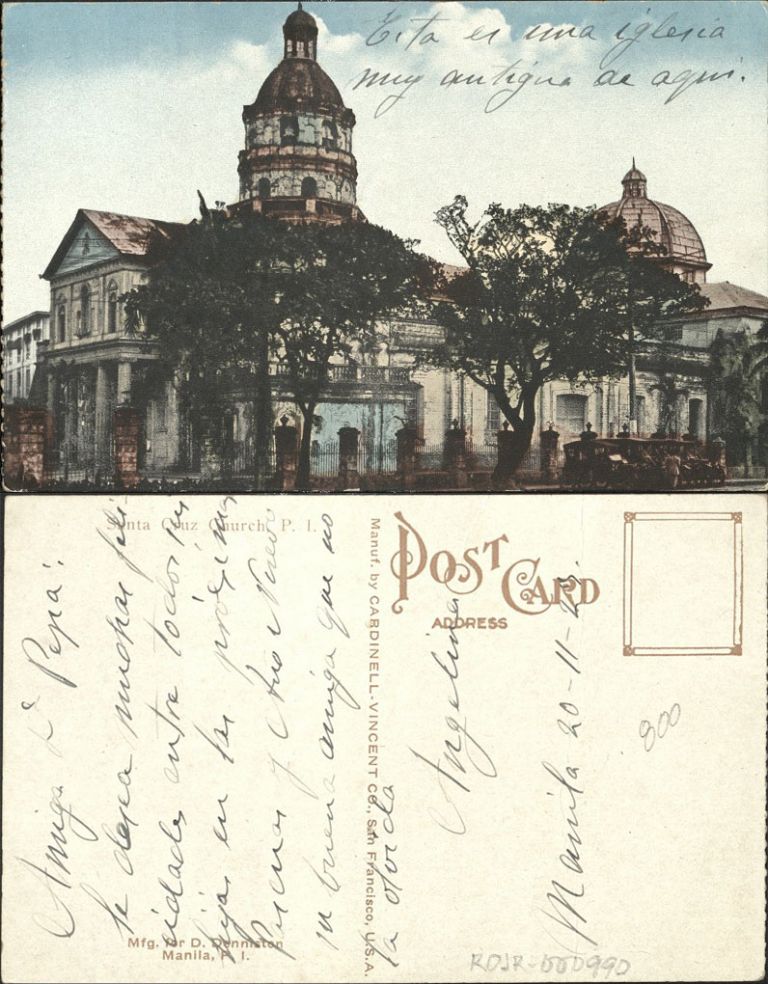 Esta es una iglesia
muy antigua de aqui.
Santa Cruz Church, P. I.
Amiga Dª Pepa:
le desea muchas feli-
cidades entre todos sus
hijas en las próximas
Pascuas y Año Nuevo
su buena amiga que no
la olvida
Angelina
Manila 20-11-23.
Mfg. for D. Denniston
Manila, P. I.
Manuf. by CARDINELL-VINCENT CO., San Francisco, U.S.A.
POST CARD
ADDRESS
800
ROJR-000990